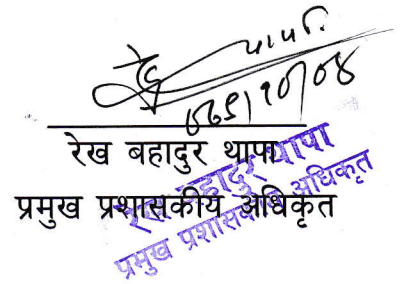 थापा
०६९/१०/०४
रेख बहादुर थापा
प्रमुख प्रशासकीय अधिकृत
रेख बहादुर थापा
प्रमुख प्रशासकीय अधिकृत